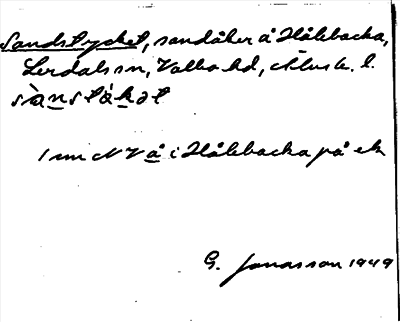 Sandstycket, sandåker å Hålebacka,
Lerdals sn, Valbo hd, Älvsb. l.
sànsták̲ǝt
1 mm NV å i Hålebacka på ek
G. Jonasson 1949